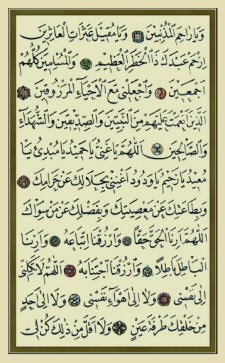 وَيَارَاحِمَ الْمُذْنِبِينَ وَيَامُقِيلَ عَثَرَاتِ الْعَاثِرِينَ
اِرْحَمْ عَبْدَكَ ذَا الْخَطَرِ الْعَظِيمِ وَالْمُسْلِمِينَ كُلَّهُمْ
اَجْمَعِينَ وَاجْعَلْنِى مَعَ الْاَحْيَاءِ الْمَرْزُوقِينَ
الَّذِينَ اَنْعَمْتَ عَلَيْهِمْ مِنَ النَّبِيِّينَ وَالصِّدِّيقِينَ وَالشُّهَدَاءِ
وَالصَّالِحِينَ اَللّٰهُمَّ يَاغَنِىُّ يَاحَمِيدُ يَامُبْدِئُ يَا
مُعِيدُ يَارَحِيمُ يَاوَدُودُ اَغْنِنِى بِحَلَالِكَ عَنْ حَرَامِكَ
وَبِطَاعَتِكَ عَنْ مَعْصِيَتِكَ وَبِفَضْلِكَ عَنْ مَنْ سِوَاكَ
اَللّٰهُمَّ اَرِنَا الْحَقَّ حَقًّا وَارْزُقْنَا اتِّبَاعَهُ وَاَرِنَا
الْبَاطِلَ بَاطِلًا وَارْزُقْنَا اجْتِنَابَهُ اَللّٰهُمَّ لَاتَكِلْنِى
اِلٰى نَفْسِى وَلَا اِلٰى هَوَاءِ نَفْسِى وَلَا اِلٰى اَحَدٍ
مِنْ خَلْقِكَ طَرْفَةَ عَيْنٍ وَلَا اَقَلَّ مِنْ ذٰلِكَ كُنْ لِى